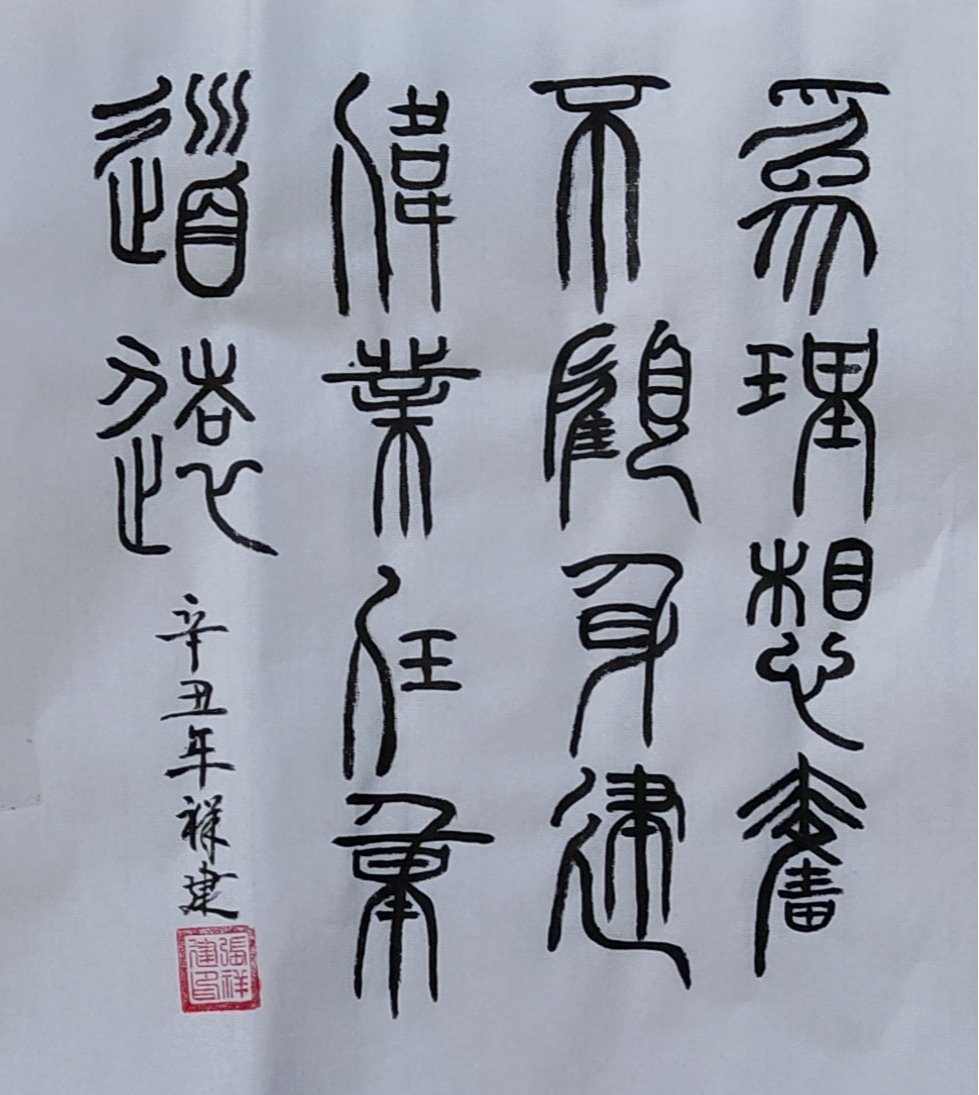 為理想奮
不顧身建
偉業任重
道遠
辛丑年祥建
張祥
建印